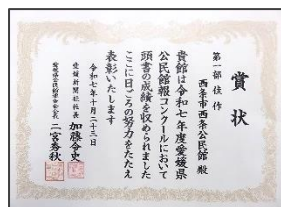 賞状
第一部 佳作
西条市西条公民館 殿
貴館は令和七年度愛媛県
公民館報コンクールにおいて
頭書の成績を収められました
ここに日ごろの努力をたたえ
表彰いたします
令和七年十月二十三日
愛媛新聞社社長 加藤令史
愛媛県公民館連合会会長 二宮秀秋